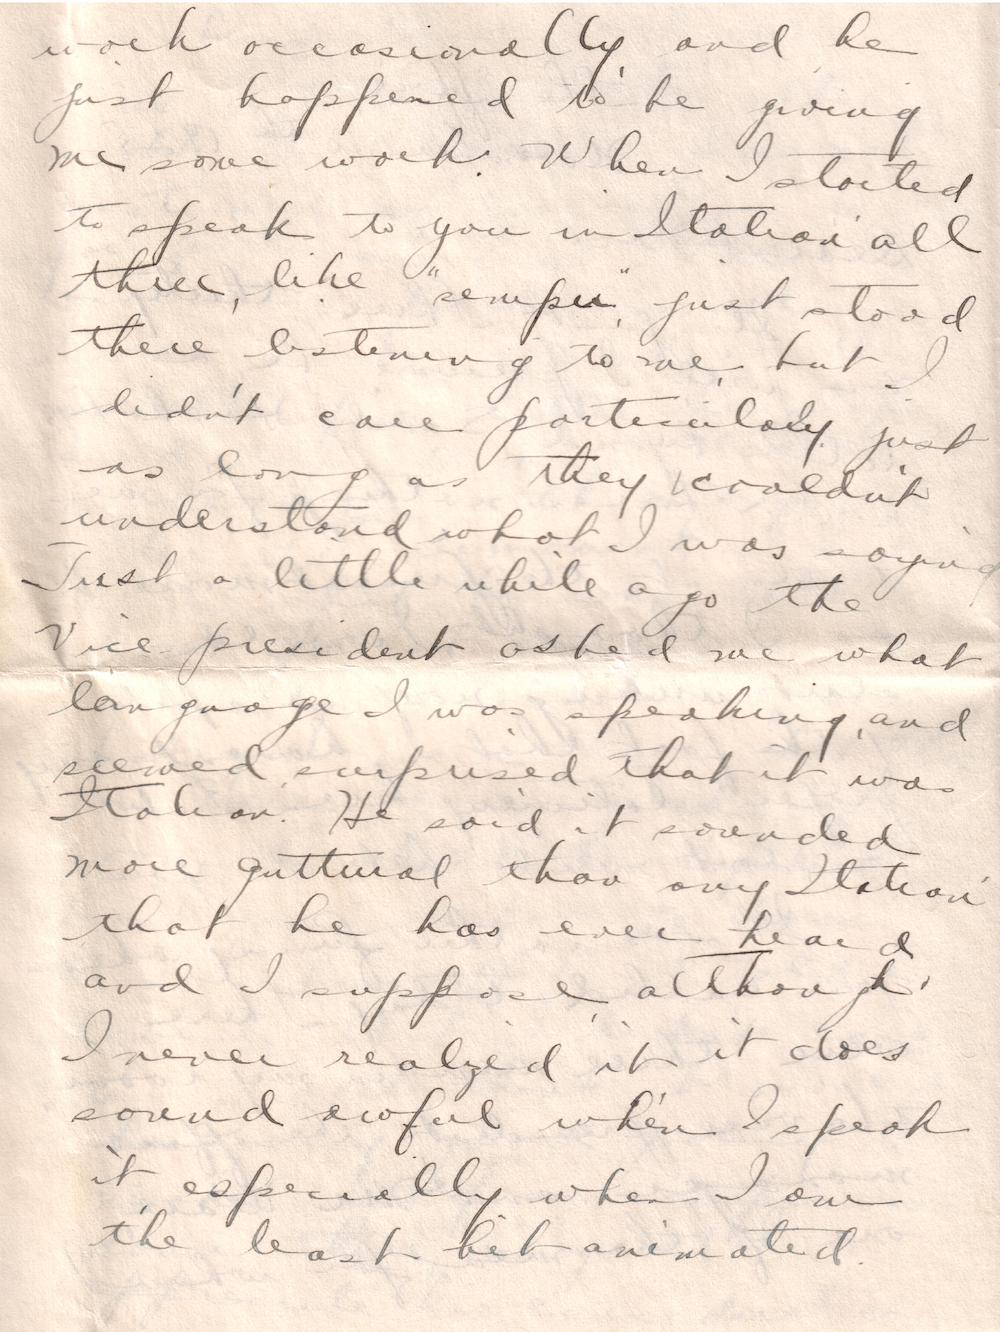 work occasionally, and he
just happened to be giving
me some work. When I started
to speak to you in Italian all
three, like "sempu", just stood
there listening to me, but I
didn't care particularly just
as long as they couldn't
understand what I was saying
Just a little while ago the
Vice president asked me what
language I was speaking, and
seemed surprised that it was
Italian. He said it sounded
more guttural than any Italian
that he has ever heard
and I suppose, although
I never realized it it does
sound awful when I speak
it especially when I am
the least bit animated.